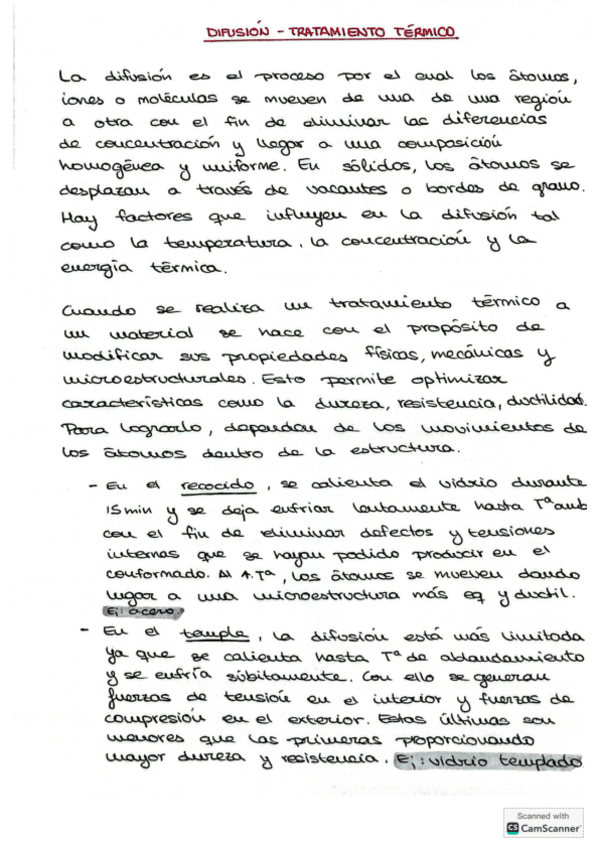 DIFUSIÓN - TRATAMIENTO TÉRMICO
La difusión es el proceso por el cual los átomos,
iones o moléculas se mueven de una de una región
a otra con el fin de eliminar las diferencias
de concentración y llegar a una composición
homogénea y uniforme. En sólidos, los átomos se
desplazan a través de vacantes o bordes de grano.
Hay factores que influyen en la difusión tal
como la temperatura, la concentración y la
energía térmica.
Cuando se realiza un tratamiento térmico a
un material se hace con el propósito de
modificar sus propiedades físicas, mecánicas y
microestructurales. Esto permite optimizar
características como la dureza, resistencia, ductilidad.
Para lograrlo, dependen de los movimientos de
los átomos dentro de la estructura.
- En el recocido, se calienta el vidrio durante
15min y se deja enfriar lentamente hasta Tª amb
con el fin de eliminar defectos y tensiones
internas que se hayan podido producir en el
conformado. Al ↑.Tª, los átomos se mueven dando
lugar a una microestructura más eq y ductil.
Ej: acero.
- En el temple, la difusión está más limitada
ya que se calienta hasta Tª de ablandamiento
y se enfría súbitamente. Con ello se generan
fuerzas de tensión en el interior y fuerzas de
compresión en el exterior. Estas últimas son
menores que las primeras proporcionando
mayor dureza y resistencia. Ej: vidrio templado
Scanned with
CS CamScanner